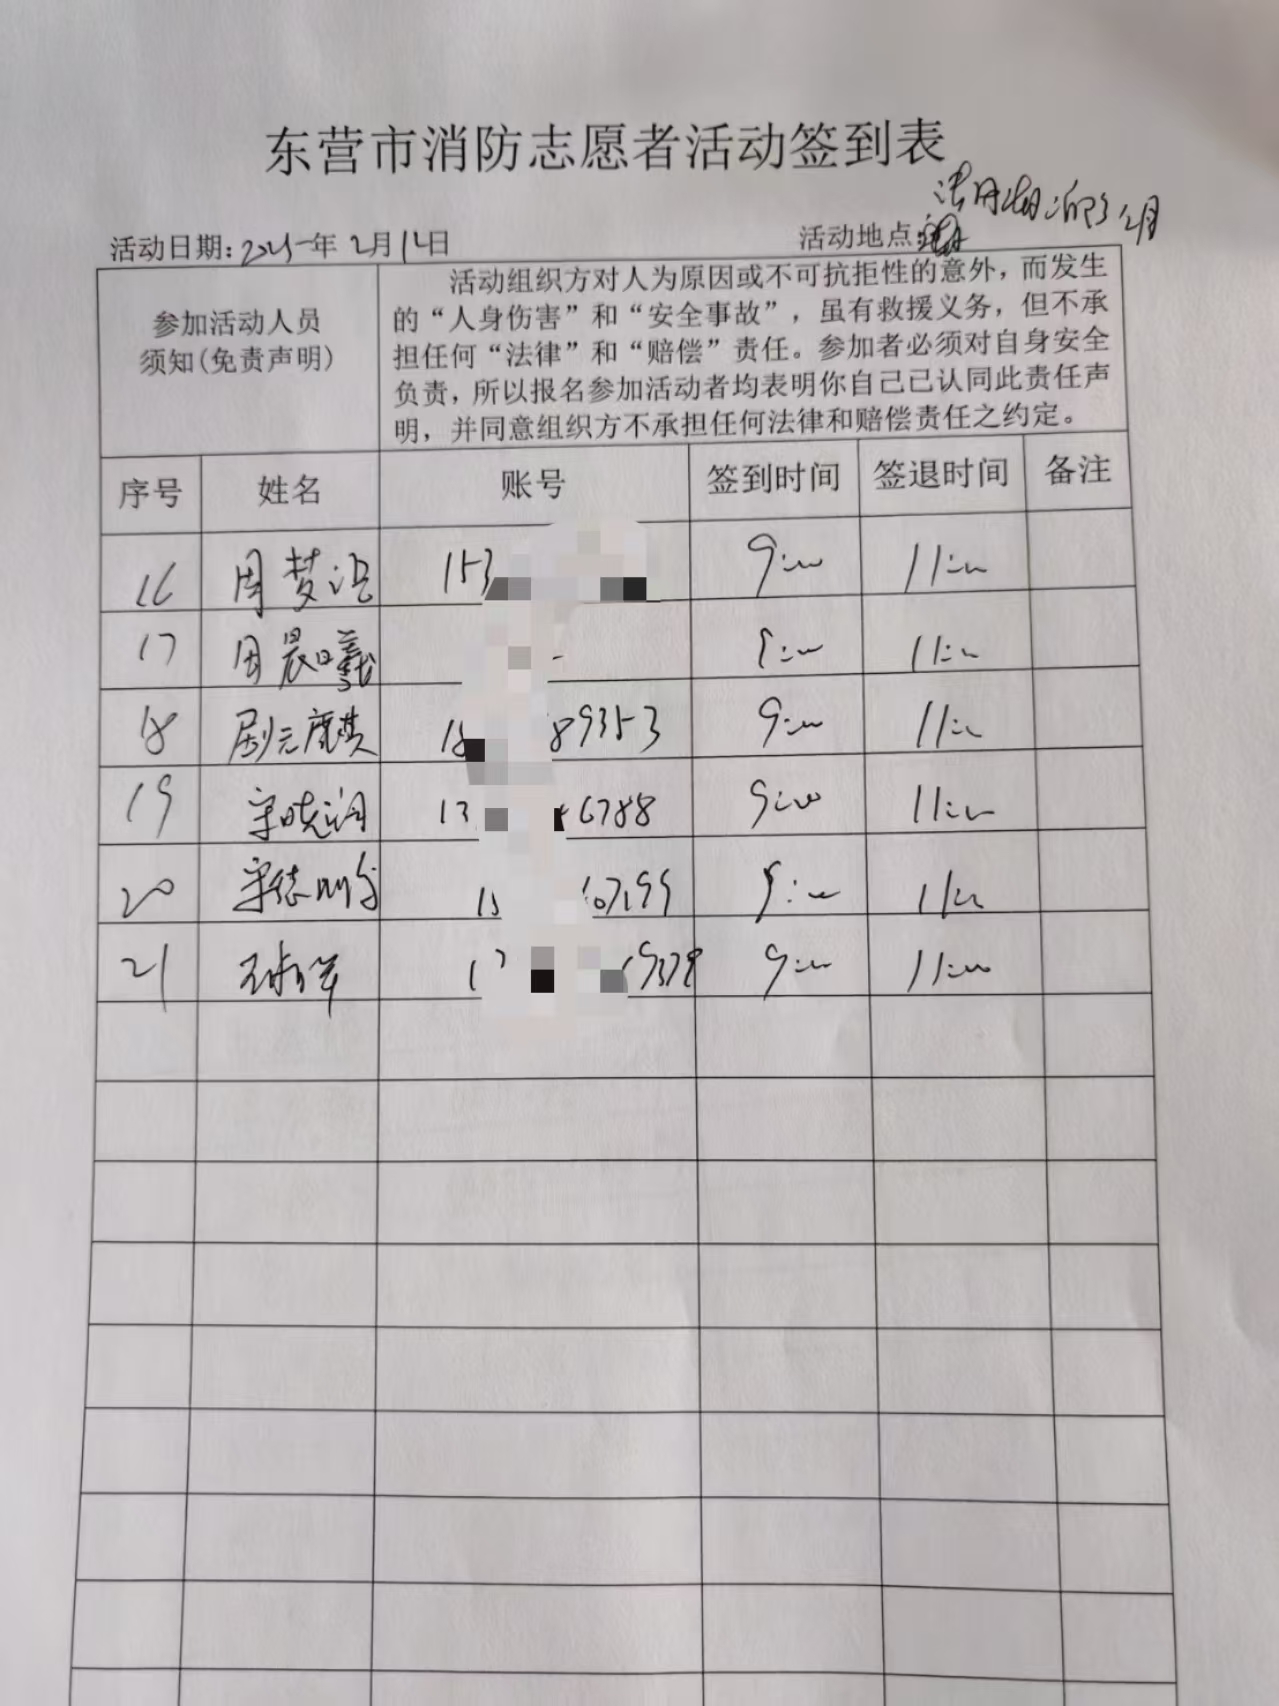 东营市消防志愿者活动签到表
活动日期: 2025年2月12日 活动地点:
参加活动人员
须知(免责声明)
活动组织方对人为原因或不可抗拒性的意外，而发生
的“人身伤害”和“安全事故”，虽有救援义务，但不承
担任何“法律”和“赔偿”责任。参加者必须对自身安全
负责，所以报名参加活动者均表明你自己已认同此责任声
明，并同意组织方不承担任何法律和赔偿责任之约定。
序号 姓名 账号 签到时间 签退时间 备注
16 周梦 153 9:00 11:00
17 周晨曦 - 9:00 11:00
18 剧元麒 18 89353 9:00 11:00
19 宋晓 13 6788 9:00 11:00
20 宋德 15 9:00 11:00
21 1 9378 9:00 11:00